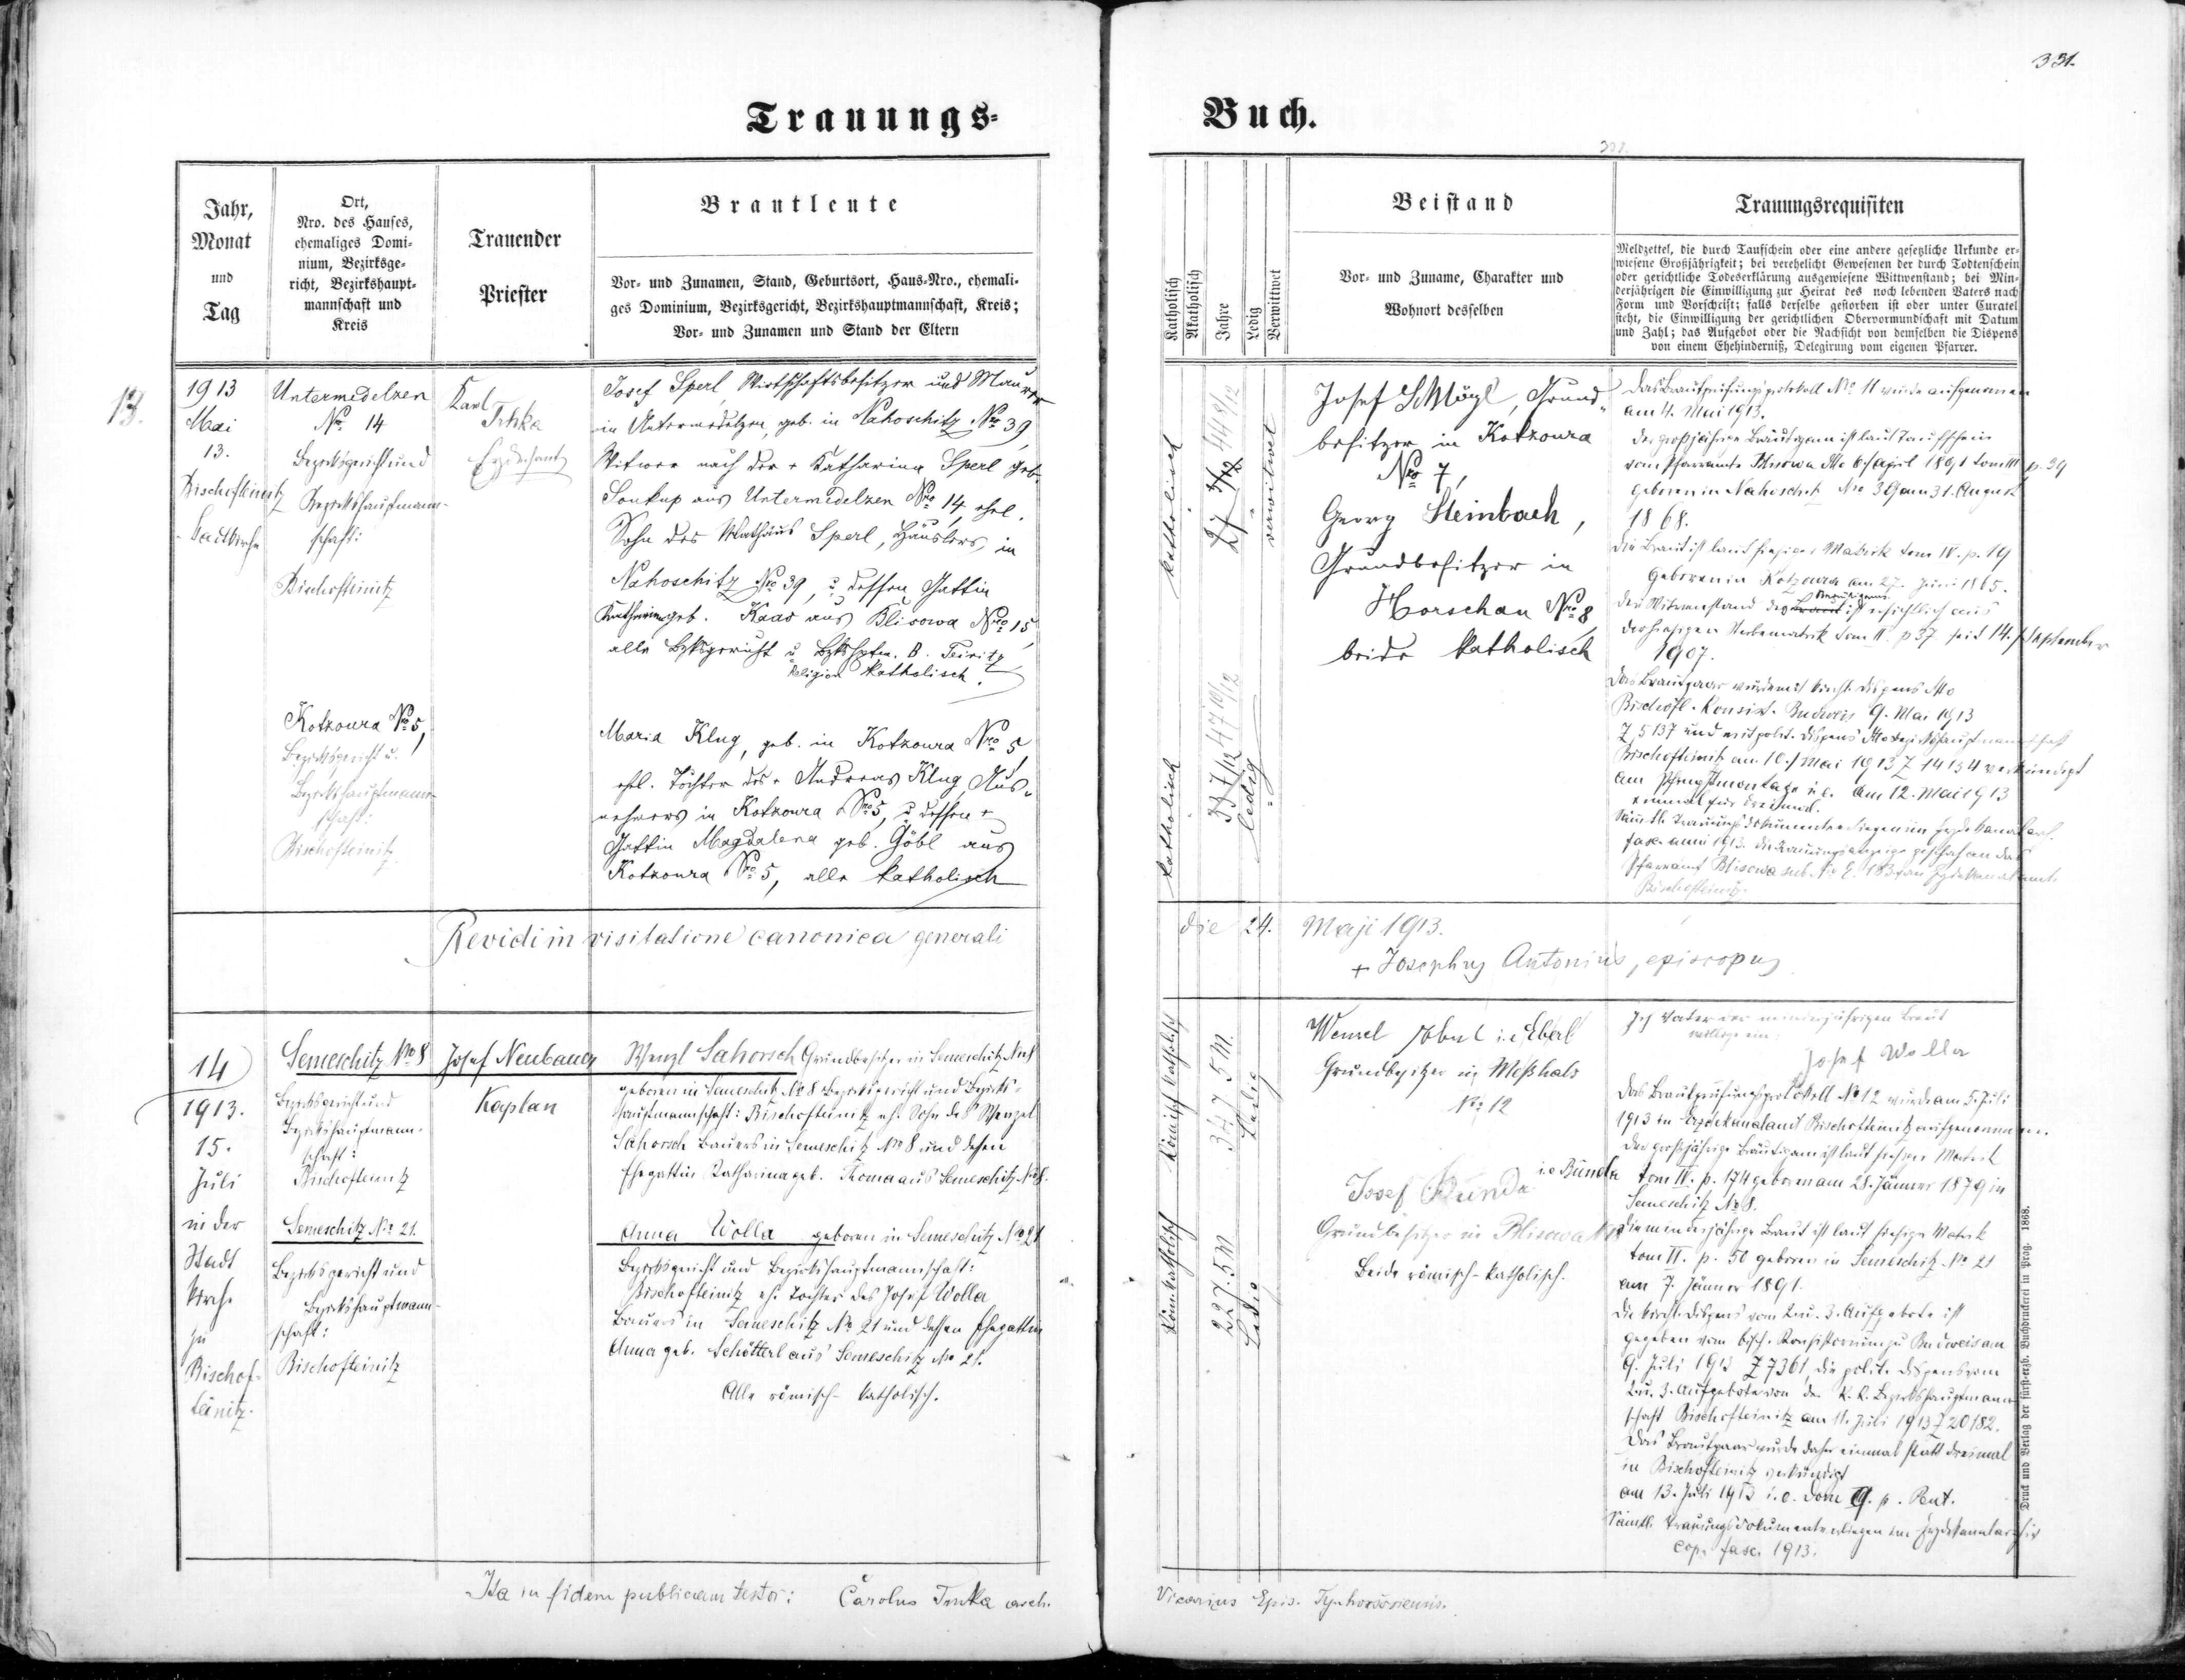 331.
Trauungs-
Buch.
Jahr,
Monat
und
Tag
Ort,
Nro. des Hauses,
ehemaliges Domi-
nium, Bezirksge-
richt, Bezirkshaupt-
mannschaft und
Kreis
Trauender
Priester
Brautleute
Vor- und Zunamen, Stand, Geburtsort, Haus-Nro., ehemali-
ges Dominium, Bezirksgericht, Bezirkshauptmannschaft, Kreis;
Vor- und Zunamen und Stand der Eltern
Katholisch
Akatholisch
Jahre
Ledig
Verwittwet
Beistand
Vor- und Zuname, Charakter und
Wohnort desselben
Trauungsrequisiten
Meldzettel, die durch Taufschein oder eine andere gesetzliche Urkunde er-
wiesene Großjährigkeit; bei verehelicht Gewesenen der durch Todtenschein
oder gerichtliche Todeserklärung ausgewiesene Wittwenstand; bei Min-
derjährigen die Einwilligung zur Heirat des noch lebenden Vaters nach
Form und Vorschrift; falls derselbe gestorben ist oder unter Curatel
steht, die Einwilligung der gerichtlichen Obervormundschaft mit Datum
und Zahl; das Aufgebot oder die Nachsicht von demselben die Dispens
von einem Ehehinderniß, Delegirung vom eigenen Pfarrer.
13.
1913
Mai
13.
Bischofteinitz
Stadtkirche
Untermedelzen
No. 14
Bezirksgericht und
Bezirkshauptmann-
schaft:
Bischofteinitz
Karl
Trnka
Erzdechant
Josef Sperl, Wirtschaftsbesitzer und Maurer
in Untermedelzen, geb. in Nahoschitz Nro 39,
Witwer nach der + Katharina Sperl geb.
Soukup aus Untermedelzen Nro 14, ehel.
Sohn des Mathäus Sperl, Häuslers, in
Nahoschitz Nro 39, u. dessen Gattin
Katharina geb. Kaas aus Blisowa Nro 15,
alle Bzksgericht u. Bzkshptm. B. Teinitz
Religion katholisch.
Kotzoura No 5,
Bezirksgericht u.
Bezirkshauptmann-
schaft:
Bischofteinitz
Maria Klug, geb. in Kotzoura Nro 5,
ehel. Tochter des + Andreas Klug, Aus-
nehmers in Kotzoura Nro 5, u. dessen +
Gattin Magdalena geb. Göbl aus
Kotzoura Nro 5, alle katholisch
katholisch
44 8/12
verwitwet
katholisch
47 10/12
ledig
Josef Schlögl, Grund-
besitzer in Kotzoura
No 7,
Georg Steinbach,
Grundbesitzer in
Horschau Nro 8,
beide katholisch
Das Brautprüfungsprotokoll No 11 wurde aufgenommen
am 4. Mai 1913.
Der großjährige Bräutigam ist laut Taufschein
vom Pfarramte Blisowa dto 6. April 1891 tom III p. 39
geboren in Nahoschitz No 39 am 31. August
1868.
Die Braut ist laut hiesiger Matrik tom IV. p. 19
geboren in Kotzoura am 27. Juni 1865.
Der Witwenstand des Bräutigams ist ersichtlich aus
der hiesigen Sterbematrik tom II. p 37 seit 14. September
1907.
Das Brautpaar wurde mit kirchl. Dispens dto
Bischöfl. Konsist. Budweis 9. Mai 1913
Z 5137 und mit polit. Dispens dto Bezirkshauptmannschaft
Bischofteinitz am 10. Mai 1913 Z 14134 verkündigt
am Pfingstmontage i.e. am 12. Mai 1913
einmal für dreimal.
Sämtl. Trauungsdokumente erliegen im Erzdekanatsarch.
fasc. anni 1913. Die Trauungsanzeige geschah an das
Pfarramt Blisowa sub No E. 183 am Erzdekanatsamte
Bischofteinitz.
Revidi in visitatione canonica generali
die 24. Maji 1913.
+ Josephus Antonius, episcopus
14
1913.
15.
Juli
in der
Stadt
kirche
zu
Bischof-
teinitz.
Semeschitz No 8
Bezirksgericht und
Bezirkshauptmann-
schaft:
Bischofteinitz
Josef Neubauer
Kaplan
Wenzl Sahorsch Grundbesitzer in Semeschitz No 8
geboren in Semeschitz No 8 Bezirksgericht und Bezirks-
hauptmannschaft: Bischofteinitz eh. Sohn des Wenzel
Sahorsch Bauers in Semeschitz No 8 und dessen
Ehegattin Katharina geb. Thoma aus Semeschitz No 8.
Semeschitz No 21.
Bezirksgericht und
Bezirkshauptmann-
schaft:
Bischofteinitz
Anna Wolla geboren in Semeschitz No 21
Bezirksgericht und Bezirkshauptmannschaft:
Bischofteinitz eh. Tochter des Josef Wolla
Bauers in Semeschitz No 21 und dessen Ehegattin
Anna geb. Schötterl aus Semeschitz No 21.
Alle römisch-katholisch.
Römisch katholisch
34 J. 5 M.
Ledig
Röm. katholisch
22 J. 5 M
Ledig
Wenzel i.e. Eberl
Grundbesitzer in Meßhals
No 12
Josef Bunda i.e Bunda
Grundbesitzer in Blisowa
Beide römisch-katholisch.
Ich Vater der minderjährigen Braut
willige ein:
Josef Wolla
Das Brautprüfungsprotokoll No 12 wurde am 5. Juli
1913 im Erzdekanalamt Bischofteinitz aufgenommen.
Der großjährige Bräutigam ist laut hiesiger Matrik
tom IV. p. 174 geboren am 28. Jänner 1879 in
Semeschitz No 8.
Die minderjährige Braut ist laut hiesiger Matrik
tom VI. p. 50 geboren in Semeschitz No 21
am 7. Jänner 1891.
Die kirchl. Dispens vom 2. u. 3. Aufgebote ist
gegeben vom bisch. Konsistorium zu Budweis am
9. Juli 1913 Z 7361, die polit. Dispens vom
2. u. 3. Aufgebote von der K. K. Bezirkshauptmann-
schaft Bischofteinitz am 11. Juli 1913 Z 20182.
Das Brautpaar wurde daher einmal statt dreimal
in Bischofteinitz verkündigt
am 13. Juli 1913 i.e. Dom 9. p. Pent.
Sämtl. Trauungsdokumente erliegen im Erzdekanatarchiv
cop. fasc. 1913.
Ita in fidem publicam testor: Carolus Trnka arch.
Vicarius Epis.
Druck und Verlag der fürst-erzb. Buchdruckerei in Prag. 1868.